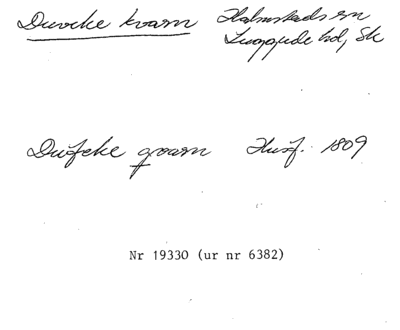 Duveke kvarn Halmstads sn
Luggude hd, Sk
Dufeke qvarn Husf. 1809
Nr 19330 (ur nr 6382)